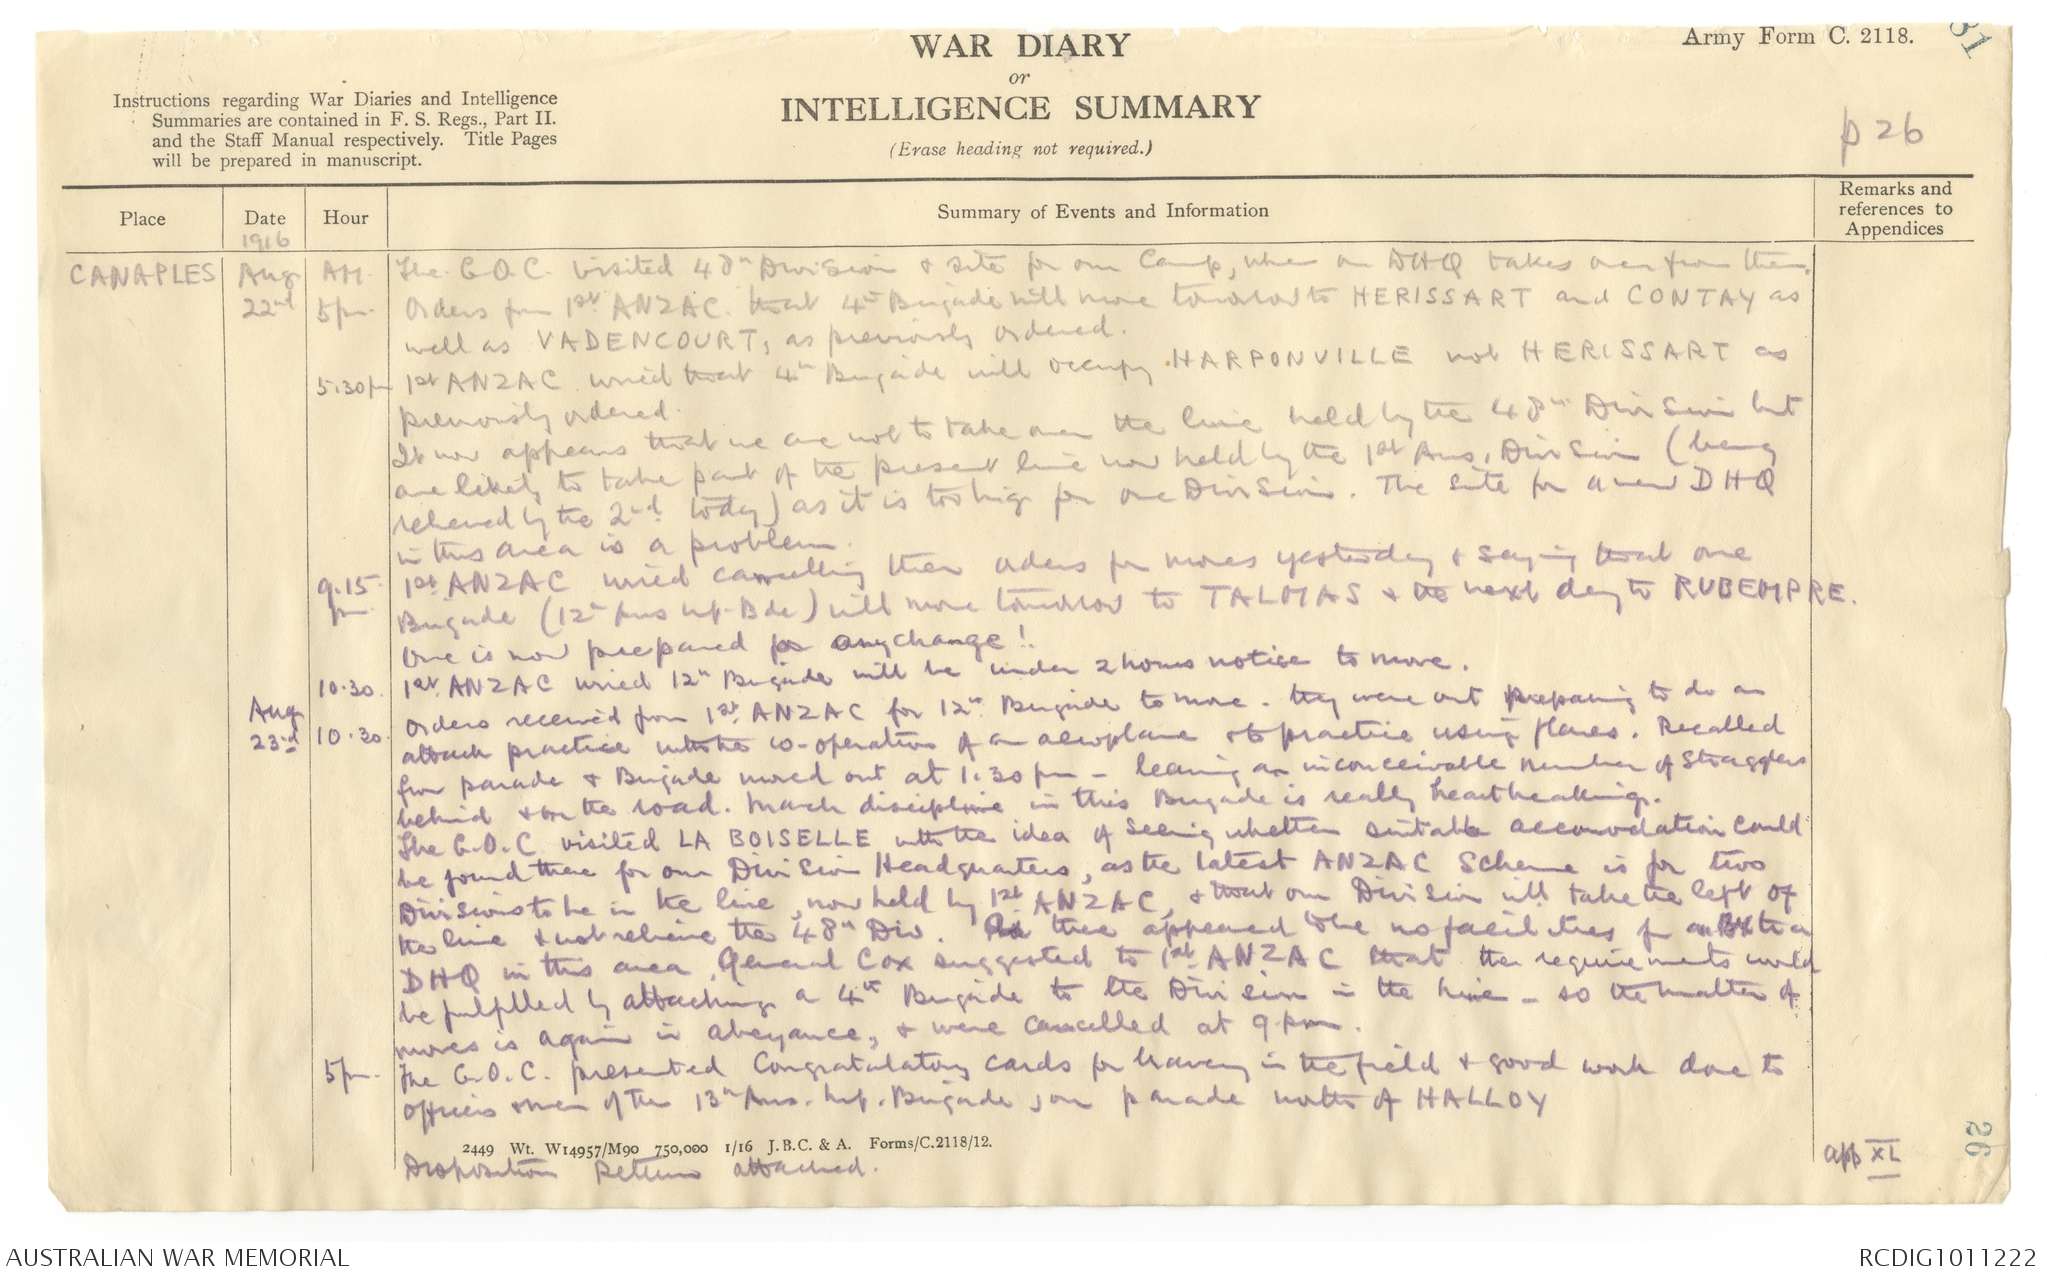 WAR DIARY
or
INTELLIGENCE SUMMARY
(Erase heading not required.)
Army Form C. 2118.
31
Instructions regarding War Diaries and Intelligence
Summaries are contained in F. S. Regs., Part II.
and the Staff Manual respectively. Title Pages
will be prepared in manuscript.
p 26
Place
Date
Hour
Summary of Events and Information
Remarks and
references to
Appendices
1916
CANAPLES Aug AM. The G.O.C. visited 48th Division & site for our Camp, when our DHQ takes over from them.
22nd 5pm. Orders from 1st ANZAC that 4th Brigade will move tomorrow to HERISSART and CONTAY as
well as VADENCOURT, as previously ordered.
5.30pm 1st ANZAC wired that 4th Brigade will occupy HARPONVILLE not HERISSART as
previously ordered.
It now appears that we are not to take over the line held by the 48th Division but
are likely to take part of the present line now held by the 1st Aus. Division (being
relieved by the 2nd today) as it is too big for one Division. The site for a new DHQ
in this area is a problem.
9.15 pm 1st ANZAC wired cancelling their orders for moves yesterday & saying that one
Brigade (12th Aus Inf. Bde) will move tomorrow to TALMAS & the next day to RUBEMPRE.
One is now prepared for any change!
10.30. 1st ANZAC wired 12th Brigade will be under 2 hours notice to move.
Aug 23rd 10.30. Orders received from 1st ANZAC for 12th Brigade to move. They were out preparing to do an
attack practice with the co-operation of an aeroplane & to practice using flares. Recalled
from parade & Brigade moved out at 1.30 pm - leaving an inconceivable number of stragglers
behind & on the road. March discipline in this Brigade is really heartbreaking.
The G.O.C. visited LA BOISELLE with the idea of seeing whether suitable accomodation could
be found there for our Division Headquarters, as the latest ANZAC Scheme is for two
Divisions to be in the line, now held by 1st ANZAC, & that our Division will take the left of
the line & not relieve the 48th Div. As there appeared to be no facilities for
DHQ in this area, General Cox suggested to 1st ANZAC that the requirements would
be fulfilled by attaching a 4th Brigade to the Division in the line - so the matter of
moves is again in abeyance, & were cancelled at 9 pm.
5pm. The G.O.C. presented Congratulatory cards for bravery in the field & good work done to
officers & men of the 13th Aus. Inf. Brigade, on parade north of HALLOY
2449 Wt. W14957/M90 750,000 1/16 J.B.C. & A. Forms/C.2118/12.
Disposition Return attached.
app XL
26
AUSTRALIAN WAR MEMORIAL
RCDIG1011222